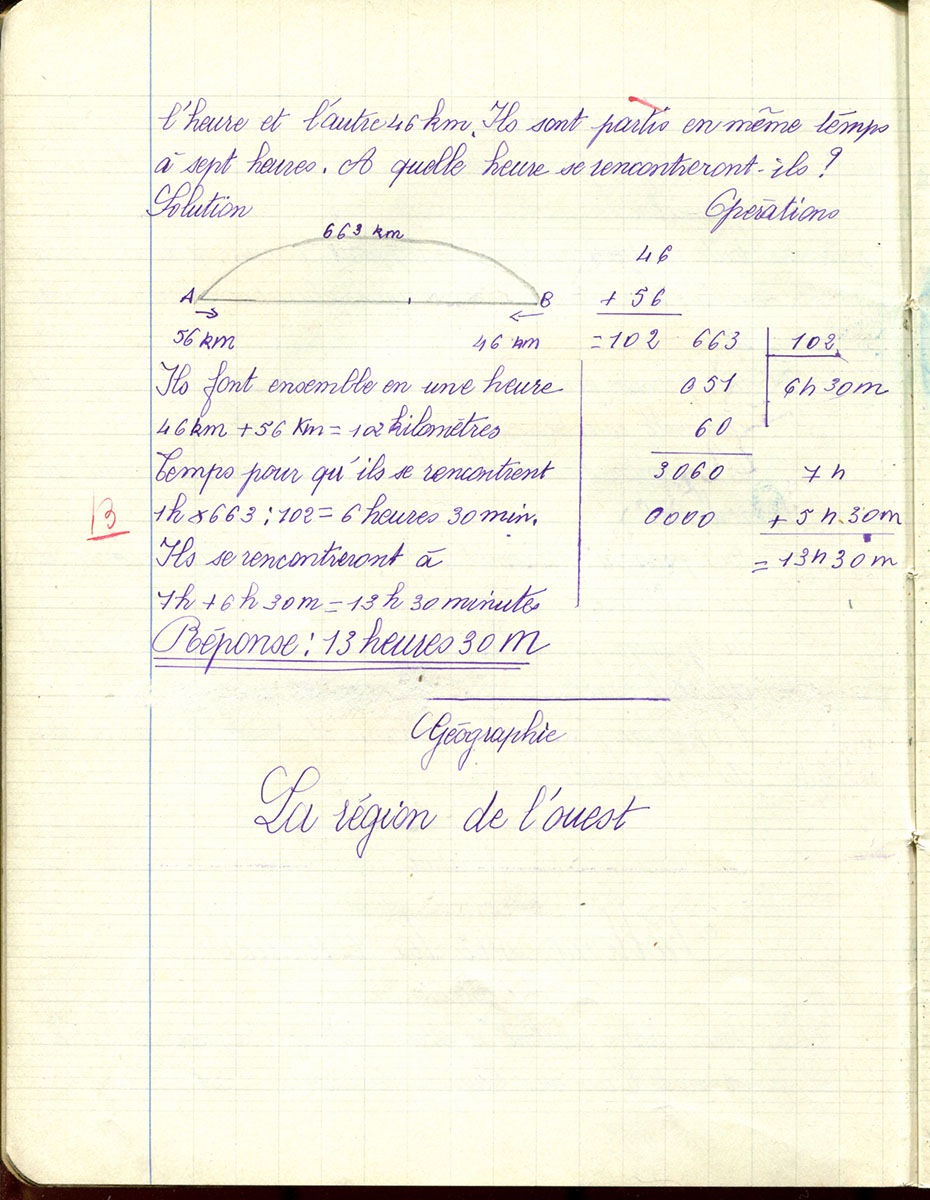 l'heure et l'autre 46 km. Ils sont partis en même temps
à sept heures. A quelle heure se rencontreront-ils ?
Solution
Opérations
663 km
A
B
56 km
46 km
46
+ 56
= 102
663
102
051
6h 30m
60
3060
7h
0000
+ 5h.30m
= 13h 30m
Ils font ensemble en une heure
46km + 56 Km = 102 kilomètres
Temps pour qu'ils se rencontrent
1h x 663 : 102 = 6 heures 30 min.
B
Ils se rencontreront à
7h + 6h 30m = 13h 30 minutes
Réponse : 13 heures 30 m
Géographie
La région de l'ouest